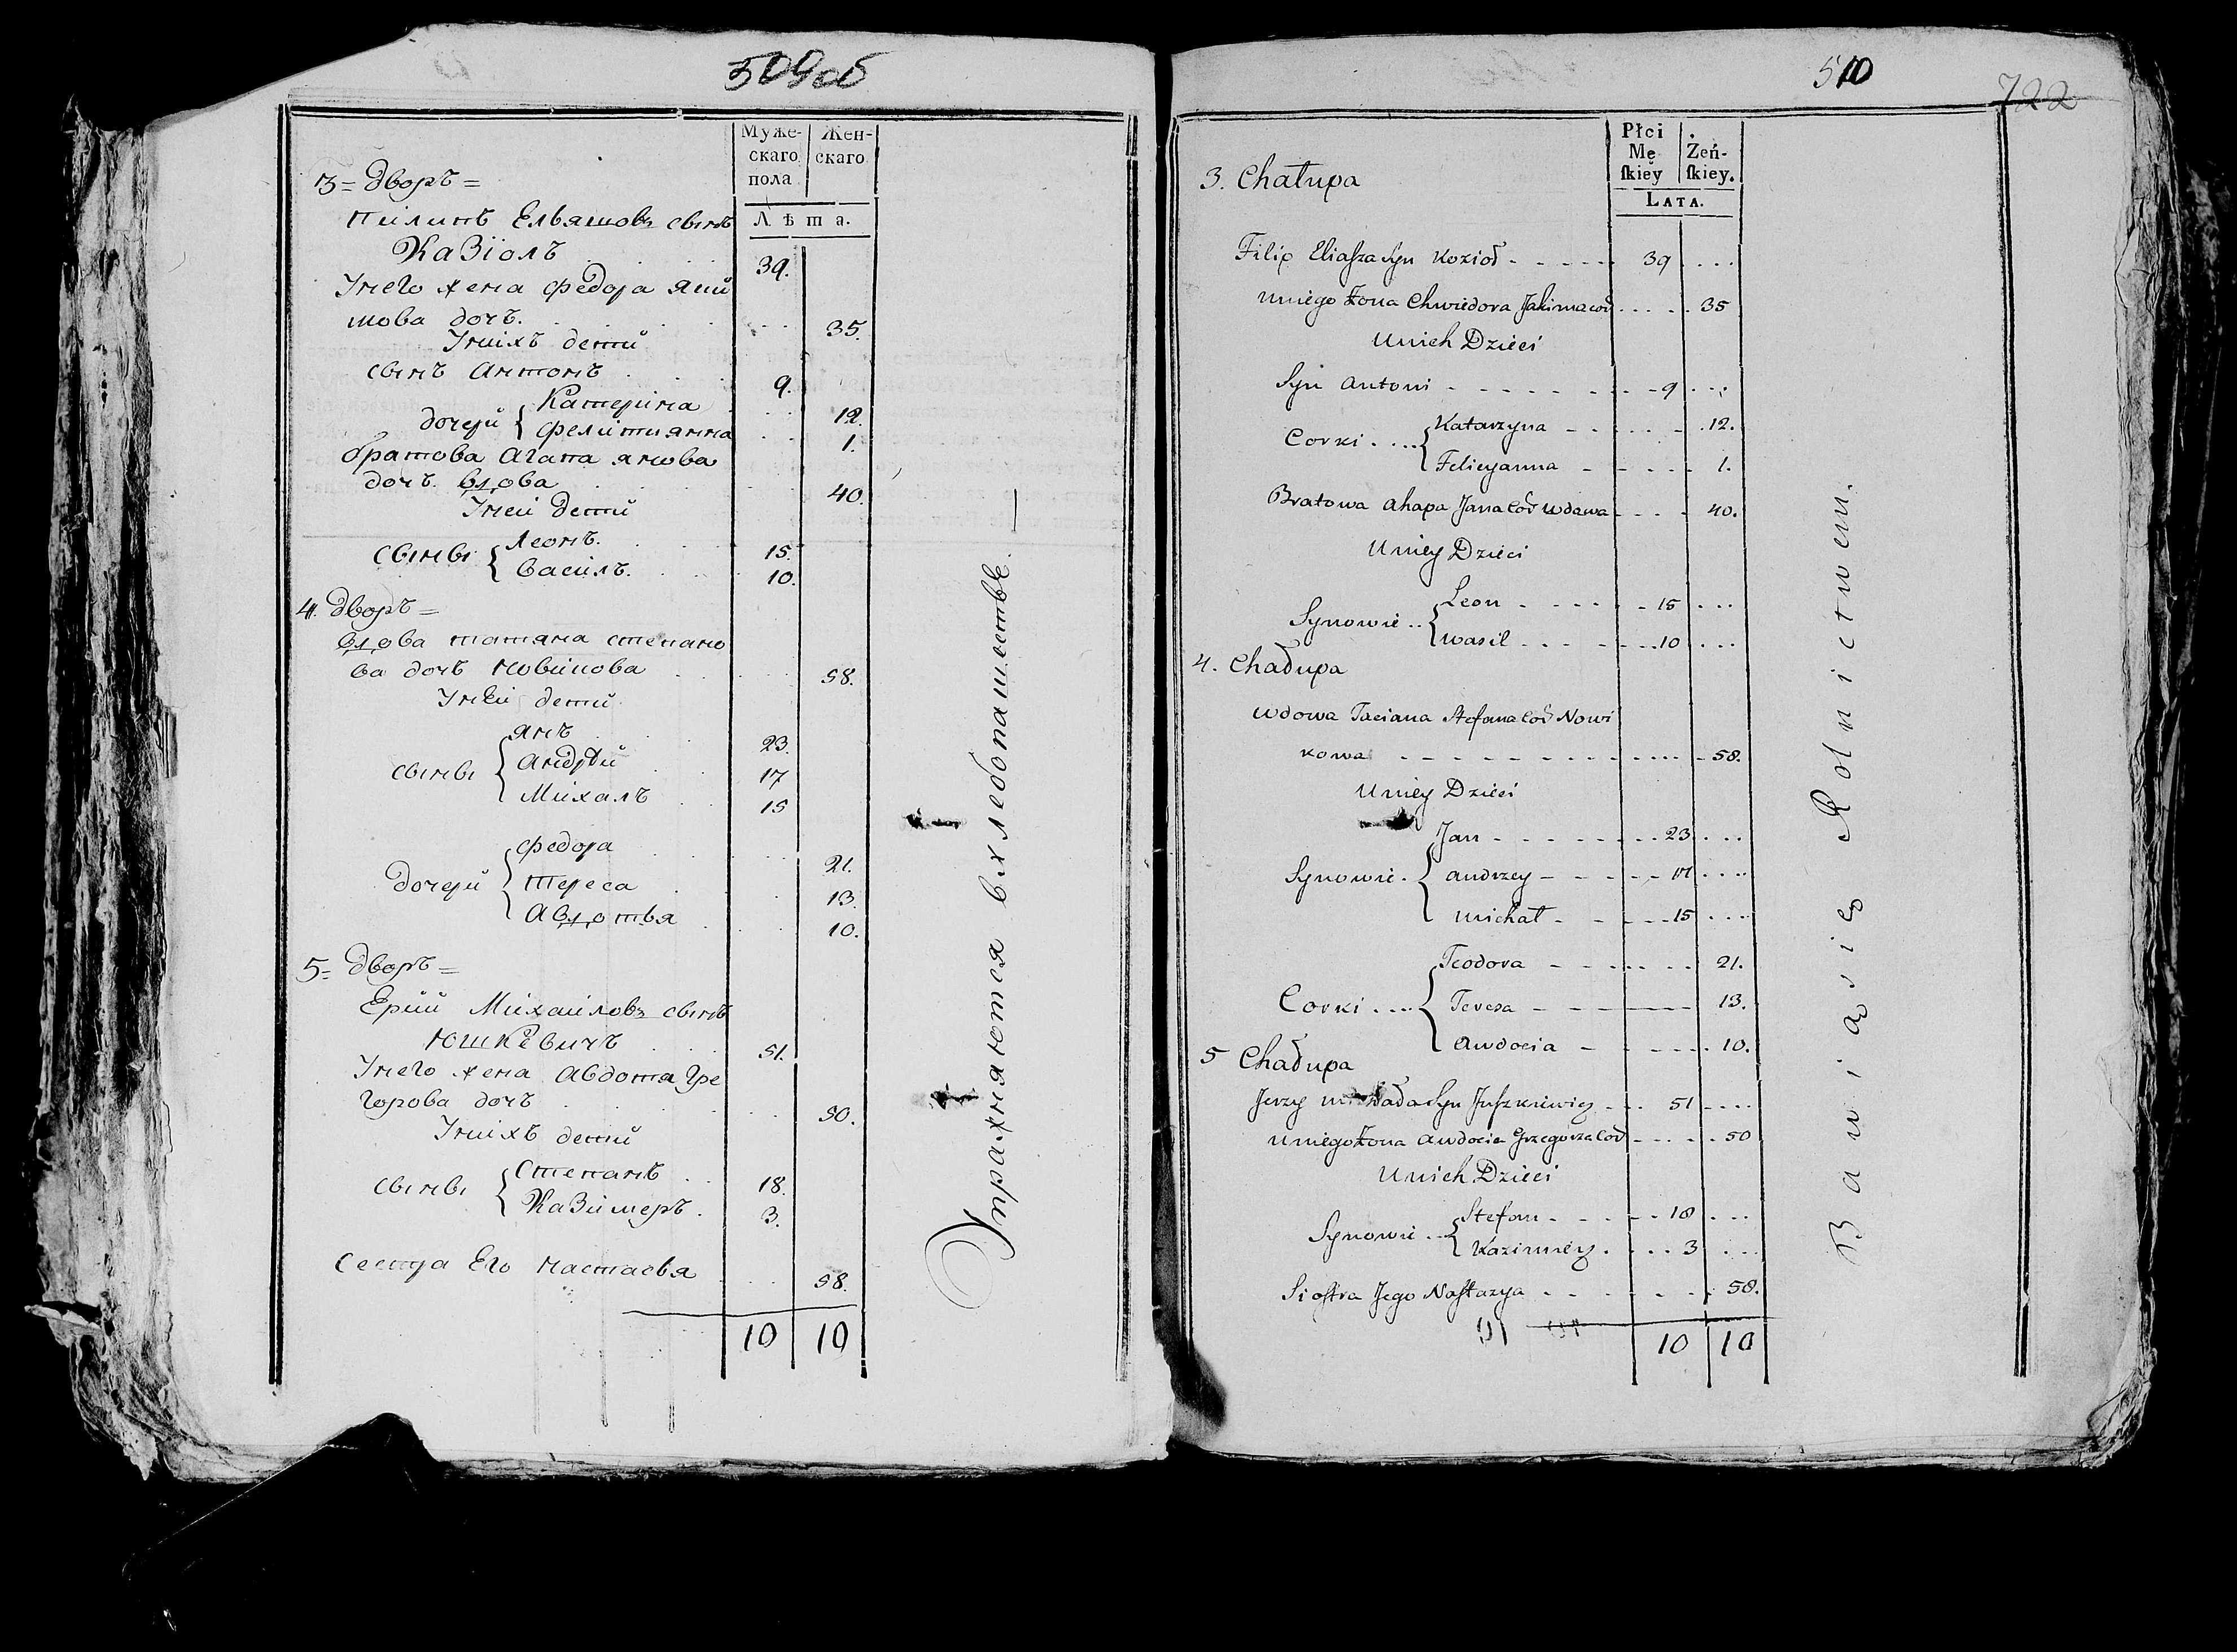 509об
Муже- Жен-
скаго скаго
пола
Лѣта.
3 = дворъ =
Пилипъ Ельяшовъ сынъ
Казіолъ . . . 39.
Унего жена Федора Яки
мова дочъ. . . . 35.
Унихъ дети
сынъ Антонъ . . . 9.
дочери { Катерина . . . 12.
Фелитиянна . . . 1.
братова Агапа янова
дочъ вдова . . . 40.
Унеи дети
сыны { Леонъ. . . . 15.
Василъ. . . . 10.
4. дворъ =
вдова татяна степано
ва дочъ новикова . . . 58.
Унеи дети
сыны { янъ . . . 23.
андрей . . . 17
Михалъ . . . 15
дочери { Федора . . . 21.
тереса . . . 13.
Авдотья . . . 10.
5 = дворъ =
Ерии Михаиловъ сынъ
юшкевичъ . . . 51.
Унего жена Авдотя Гре
горова дочъ . . . 50.
Унихъ дети
сыны { Степанъ . . . 18.
Казимеръ . 3.
Сестра Его настасья . . . 58.
10 10
Упражняются в хлебопашестве. —
510
722
Płci Żeń-
Mę skiey.
skiey
LATA.
3. Chałupa
Filip Eliasza Syn Kozioł - - - - - 39 . . .
Uniego Żona Chwiedora Jakima cor . . . . . 35
Unich Dzieci
Syn Antoni - - - - - - - 9 . . .
Corki . . . . { Katarzyna - - - - - - . 12.
Felicyanna - - - - - 1.
Bratowa Ahapa Jana Cor Wdowa - - - - 40.
Uniey Dzieci
Synowie . . { Leon . - - - - - 15 . . .
Wasil - - - - - - - . 10 . . .
4. Chałupa
Wdowa Taciana Stefana Cor Nowi
kowa - - - - - - - - - . . . . - 58.
Uniey Dzieci
Synowie . { Jan - - - - - - - . . 23 . . .
Andrzey - - - - - - 17 . . . .
Michał - - - - - 15 . . . .
Corki . . . . { Teodora - - - . . . . . 21.
Teresa - - - - 13.
Awdocia - - - - - . 10.
5 Chałupa
Jerzy Michała Syn Juszkiewicz - - . 51 - . . .
Uniego Żona Awdocia Grzegorza Cor - - - . . 50
Unich Dzieci
Synowie . . { Stefan - - - - - - 18 . . .
Kazimierz . - . . . 3 . . .
Siostra Jego Nastazya . - - - - - . 58.
10 10
Bawią się Rolnictwem.